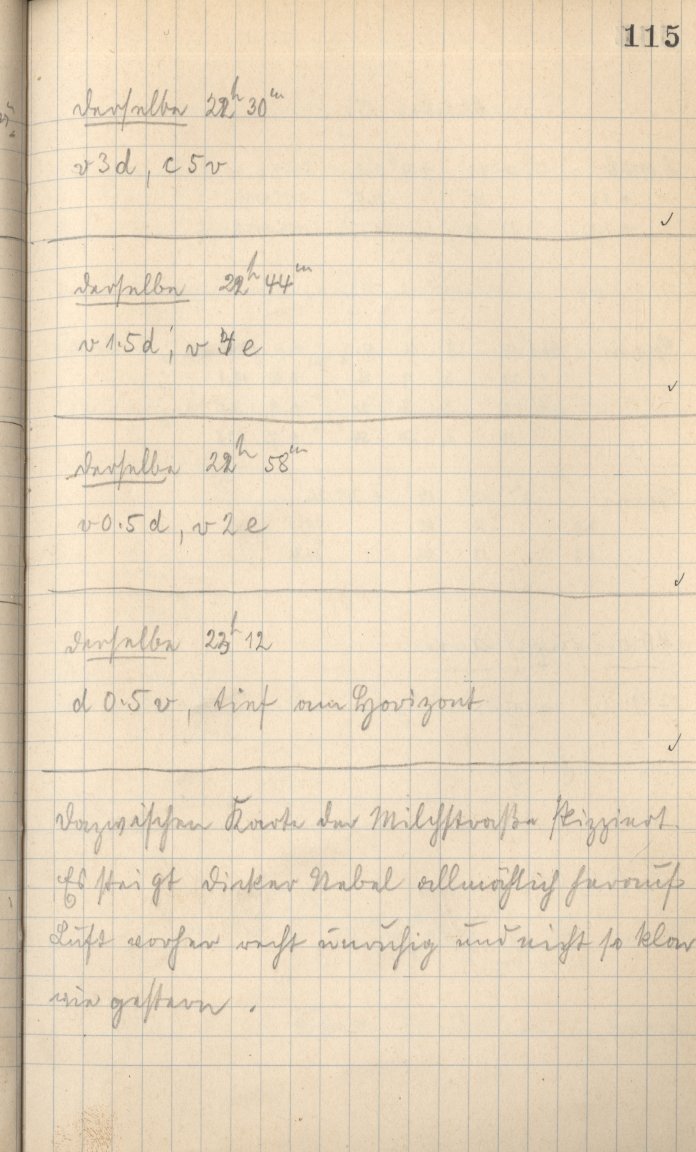 115
derselbe 22h 30m
v 3 d, c 5 v
derselbe 22h 44m
v 1.5 d, v 4 e
derselbe 22h 58m
v 0.5 d, v 2 e
derselbe 23h 12
d 0.5 v, tief am Horizont
dazwischen Karte der Milchstraße skizziert.
Es steigt dicker Nebel allmählich herauf
Luft vorher recht unruhig und nicht so klar
wie gestern.